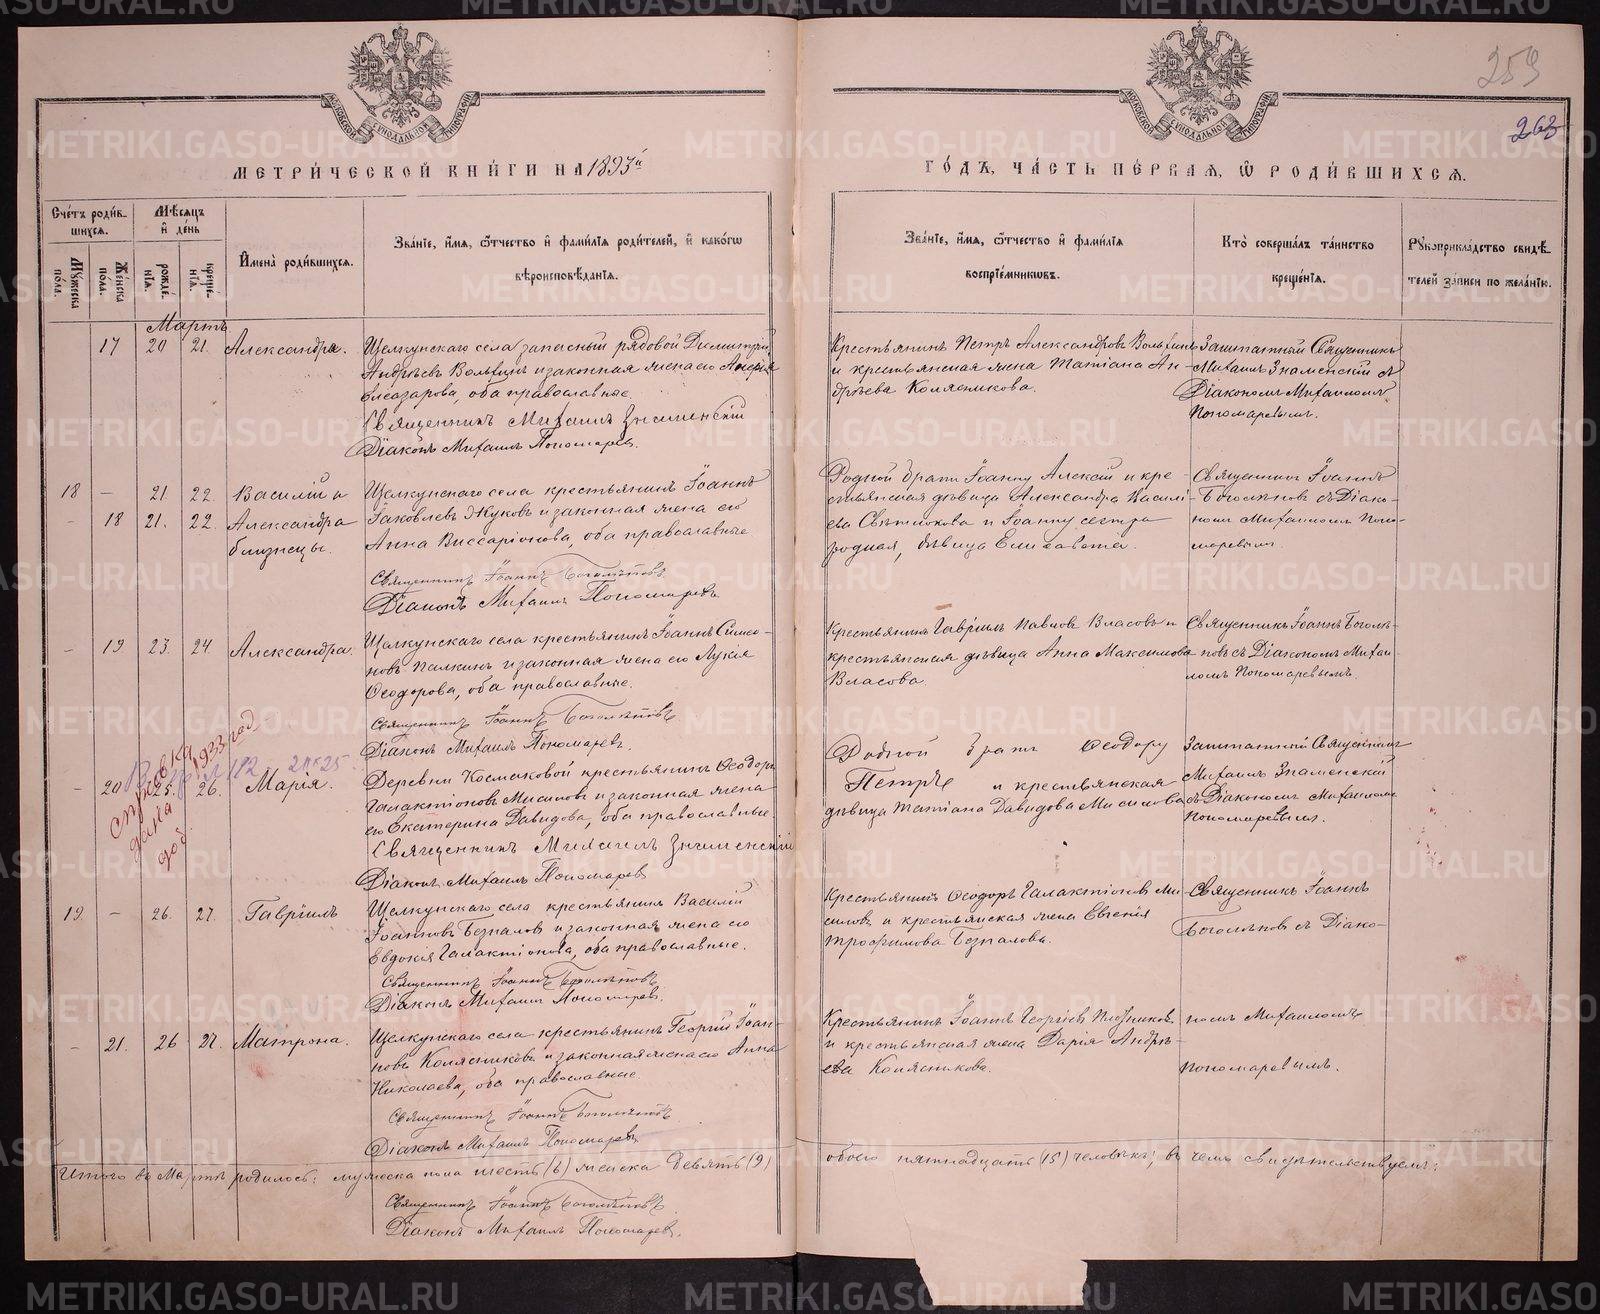 259
263
МЕТРИ́ЧЕСКОЙ КНИ́ГИ НА 1893й
ГО́ДЪ, ЧА́СТЬ ПЕ́РВАЯ, Ѽ РОДИ́ВШИХСЯ.
Сче́тъ роди́в-
шихся.
Мѣ́сяцъ
и҆ де́нь
Мꙋ́жеска по́ла.
Же́нска по́ла.
рожде́-
нїѧ.
креще́-
нїѧ.
И҆мена̀ роди́вшихся.
Зва́нїе, и҆́мѧ, ѻ҆́тчество и҆ фами́лїѧ роди́телей, и҆ како́гѡ
вѣроисповѣ́данїѧ.
Зва́нїе, и҆́мѧ, ѻ҆́тчество и҆ фами́лїѧ
воспрїе́мникѡвъ.
Кто̀ соверша́лъ та́инство
креще́нїѧ.
Рꙋкоприкла́дство свидѣ́-
телей за́писи по жела́нїю.
Мартъ
17 20 21. Александра.
Щелкунскаго села запасный рядовой Димитрій
Андрѣевъ Вольхинъ и законная жена его
Елеазарова, оба православные.
Священникъ Михаилъ Знаменскій
Діаконъ Михаилъ Пономаревъ.
Крестьянинъ Петръ Александровъ Вольхинъ
и крестьянская жена Татіана Ан-
дрѣева Колясникова.
Заштатный Священникъ
Михаилъ Знаменскій съ
Діакономъ Михаиломъ
Пономаревымъ.
18 – 21. 22. Василій и
- 18 21. 22. Александра
близнецы.
Щелкунскаго села крестьянинъ Іоаннъ
Іаковлевъ Жуковъ и законная жена его
Анна Виссаріонова, оба православные
Священникъ Іоаннъ Боголѣповъ
Діаконъ Михаилъ Пономаревъ
Родной братъ Іоанну Алексѣй и кре-
стьянская дѣвица Александра Василі-
ева и Іоанну сестра
родная, дѣвица Елисавета.
Священникъ Іоаннъ
Боголѣповъ съ Діако-
номъ Михаиломъ Поно-
маревымъ
- 19 23. 24. Александра.
Щелкунскаго села крестьянинъ Іоаннъ Симео-
новъ Палкинъ и законная жена его Лукія
Ѳеодорова, оба православные.
Священникъ Іоаннъ Боголѣповъ
Діаконъ Михаилъ Пономаревъ.
Крестьянинъ Гавріилъ Павловъ Власовъ и
крестьянская дѣвица Анна Максимова
Власова.
Священникъ Іоаннъ Боголѣ-
повъ съ Діакономъ Михаи-
ломъ Пономаревымъ.
справка
дана
1933 год
- 20 25. 26. Марія.
Деревни Космаковой крестьянинъ Ѳеодоръ
Галактіоновъ Мисиловъ и законная жена
его Екатерина Давидова, оба православные.
Священникъ Михаилъ Знаменскій
Діаконъ Михаилъ Пономаревъ
Родной братъ Ѳеодору
Петръ и крестьянская
дѣвица Татіана Давидова Мисилова
Заштатный Священникъ
Михаилъ Знаменскій
съ Діакономъ Михаиломъ
Пономаревымъ.
19. – 26. 27. Гавріилъ
Щелкунскаго села крестьянинъ Василій
Іоанновъ Безпаловъ и законная жена его
Евдокія Галактіонова, оба православные.
Священникъ Іоаннъ Боголѣповъ
Діаконъ Михаилъ Пономаревъ.
Крестьянинъ Ѳеодоръ Галактіоновъ Ми-
силовъ и крестьянская жена Евгенія
Трофимова Безпалова.
Священникъ Іоаннъ
Боголѣповъ съ Діако-
- 21. 26 27. Матрона.
Щелкунскаго села крестьянинъ Георгій Іоан-
новъ Колясниковъ и законная жена его Анна
Николаева, оба православные.
Священникъ Іоаннъ Боголѣповъ
Діаконъ Михаилъ Пономаревъ
Крестьянинъ Іоаннъ Георгіевъ Плотниковъ
и крестьянская жена Дарія Андрѣ-
ева Колясникова.
номъ Михаиломъ
Пономаревымъ.
Итого въ Мартѣ родилось: мужеска пола шесть (6) женска девять (9)
обоего пятнадцать (15) человѣкъ; въ чемъ свидѣтельствуемъ:
Священникъ Іоаннъ Боголѣповъ
Діаконъ Михаилъ Пономаревъ.
METRIKI.GASO-URAL.RU